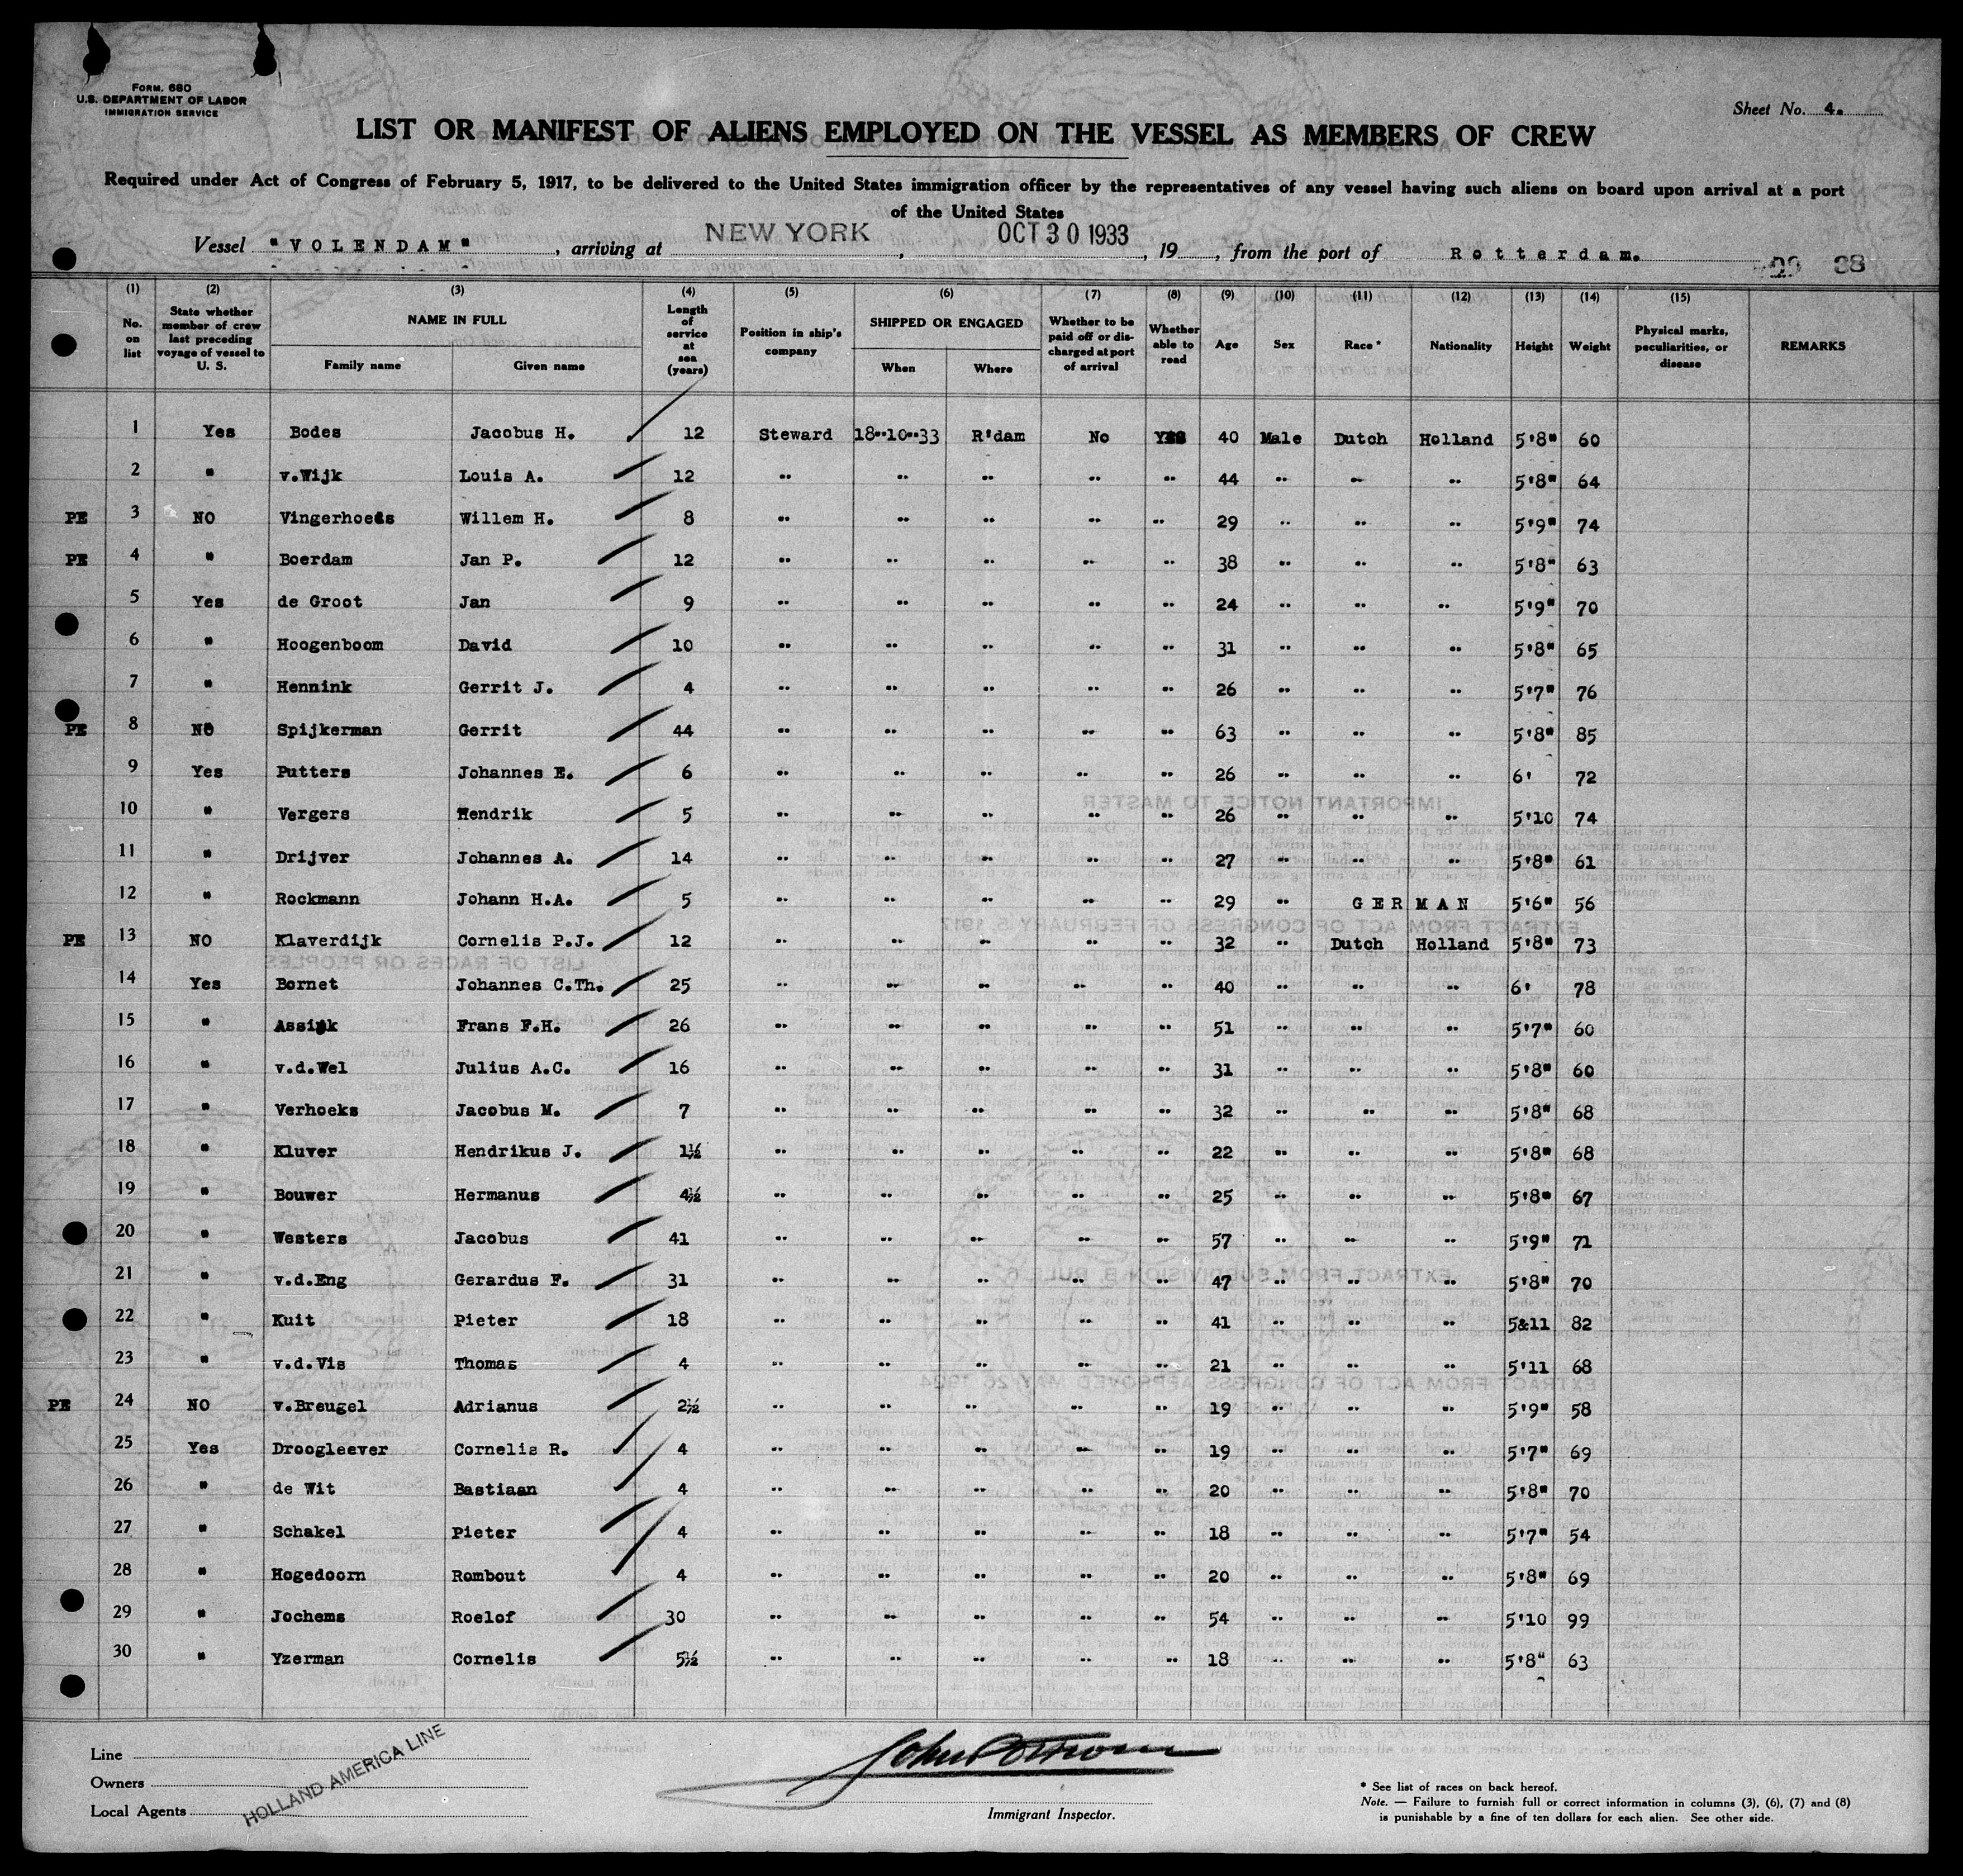 FORM. 680
U.S. DEPARTMENT OF LABOR
IMMIGRATION SERVICE
Sheet No. 4.
LIST OR MANIFEST OF ALIENS EMPLOYED ON THE VESSEL AS MEMBERS OF CREW
Required under Act of Congress of February 5, 1917, to be delivered to the United States immigration officer by the representatives of any vessel having such aliens on board upon arrival at a port
of the United States
Vessel "VOLENDAM", arriving at NEW YORK, OCT 30 1933, 19, from the port of Rotterdam.
(1) (2) (3) (4) (5) (6) (7) (8) (9) (10) (11) (12) (13) (14) (15)
No. on list State whether member of crew last preceding voyage of vessel to U. S. NAME IN FULL Family name Given name Length of service at sea (years) Position in ship's company SHIPPED OR ENGAGED When Where Whether to be paid off or discharged at port of arrival Whether able to read Age Sex Race * Nationality Height Weight Physical marks, peculiarities, or disease REMARKS
1 Yes Bodes Jacobus H. 12 Steward 18--10--33 R'dam No Yes 40 Male Dutch Holland 5'8" 60
2 " v.Wijk Louis A. 12 " " " " " 44 " " " 5'8" 64
PE 3 NO Vingerhoeds Willem H. 8 " " " " " 29 " " " 5'9" 74
PE 4 " Boerdam Jan P. 12 " " " " " 38 " " " 5'8" 63
5 Yes de Groot Jan 9 " " " " " 24 " " " 5'9" 70
6 " Hoogenboom David 10 " " " " " 31 " " " 5'8" 65
7 " Hennink Gerrit J. 4 " " " " " 26 " " " 5'7" 76
PE 8 NO Spijkerman Gerrit 44 " " " " " 63 " " " 5'8" 85
9 Yes Putters Johannes E. 6 " " " " " 26 " " " 6' 72
10 " Vergers Hendrik 5 " " " " " 26 " " " 5'10 74
11 " Drijver Johannes A. 14 " " " " " 27 " " " 5'8" 61
12 " Rockmann Johann H.A. 5 " " " " " 29 " GERMAN 5'6" 56
PE 13 NO Klaverdijk Cornelis P.J. 12 " " " " " 32 " Dutch Holland 5'8" 73
14 Yes Bornet Johannes C.Th. 25 " " " " " 40 " " " 6' 78
15 " Assijk Frans F.H. 26 " " " " " 51 " " " 5'7" 60
16 " v.d.Wel Julius A.C. 16 " " " " " 31 " " " 5'8" 60
17 " Verhoeks Jacobus M. 7 " " " " " 32 " " " 5'8" 68
18 " Kluver Hendrikus J. 1½ " " " " " 22 " " " 5'8" 68
19 " Bouwer Hermanus 4½ " " " " " 25 " " " 5'8" 67
20 " Westers Jacobus 41 " " " " " 57 " " " 5'9" 71
21 " v.d.Eng Gerardus F. 31 " " " " " 47 " " " 5'8" 70
22 " Kuit Pieter 18 " " " " " 41 " " " 5&11 82
23 " v.d.Vis Thomas 4 " " " " " 21 " " " 5'11 68
PE 24 NO v.Breugel Adrianus 2½ " " " " " 19 " " " 5'9" 58
25 Yes Droogleever Cornelis R. 4 " " " " " 19 " " " 5'7" 69
26 " de Wit Bastiaan 4 " " " " " 20 " " " 5'8" 70
27 " Schakel Pieter 4 " " " " " 18 " " " 5'7" 54
28 " Hogedoorn Rombout 4 " " " " " 20 " " " 5'8" 69
29 " Jochems Roelof 30 " " " " " 54 " " " 5'10 99
30 " Yzerman Cornelis 5½ " " " " " 18 " " " 5'8" 63
Line
Owners
Local Agents
HOLLAND AMERICA LINE
Immigrant Inspector.
* See list of races on back hereof.
Note. — Failure to furnish full or correct information in columns (3), (6), (7) and (8)
is punishable by a fine of ten dollars for each alien. See other side.